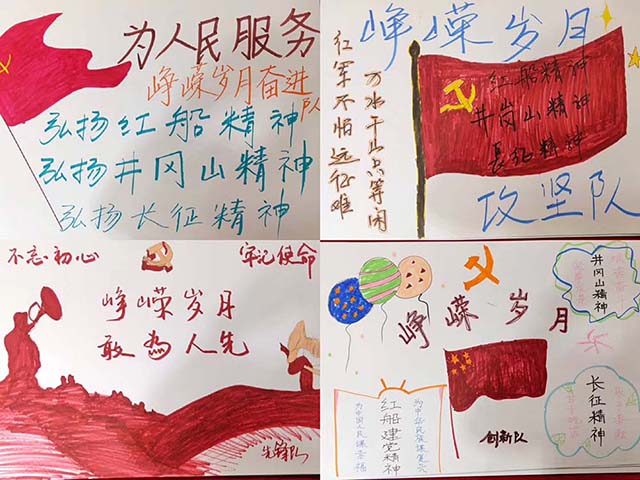 为人民服务
峥嵘岁月奋进队
弘扬红船精神
弘扬井冈山精神
弘扬长征精神
峥嵘岁月
红船精神
井岗山精神
长征精神
攻坚队
红军不怕远征难
万水千山只等闲
不忘初心
牢记使命
峥嵘岁月
敢為人先
先锋队
峥嵘岁月
井冈山精神
乐
长征精神
为中华民族谋复兴
红船建党精神
为中国人民谋幸福
创新队